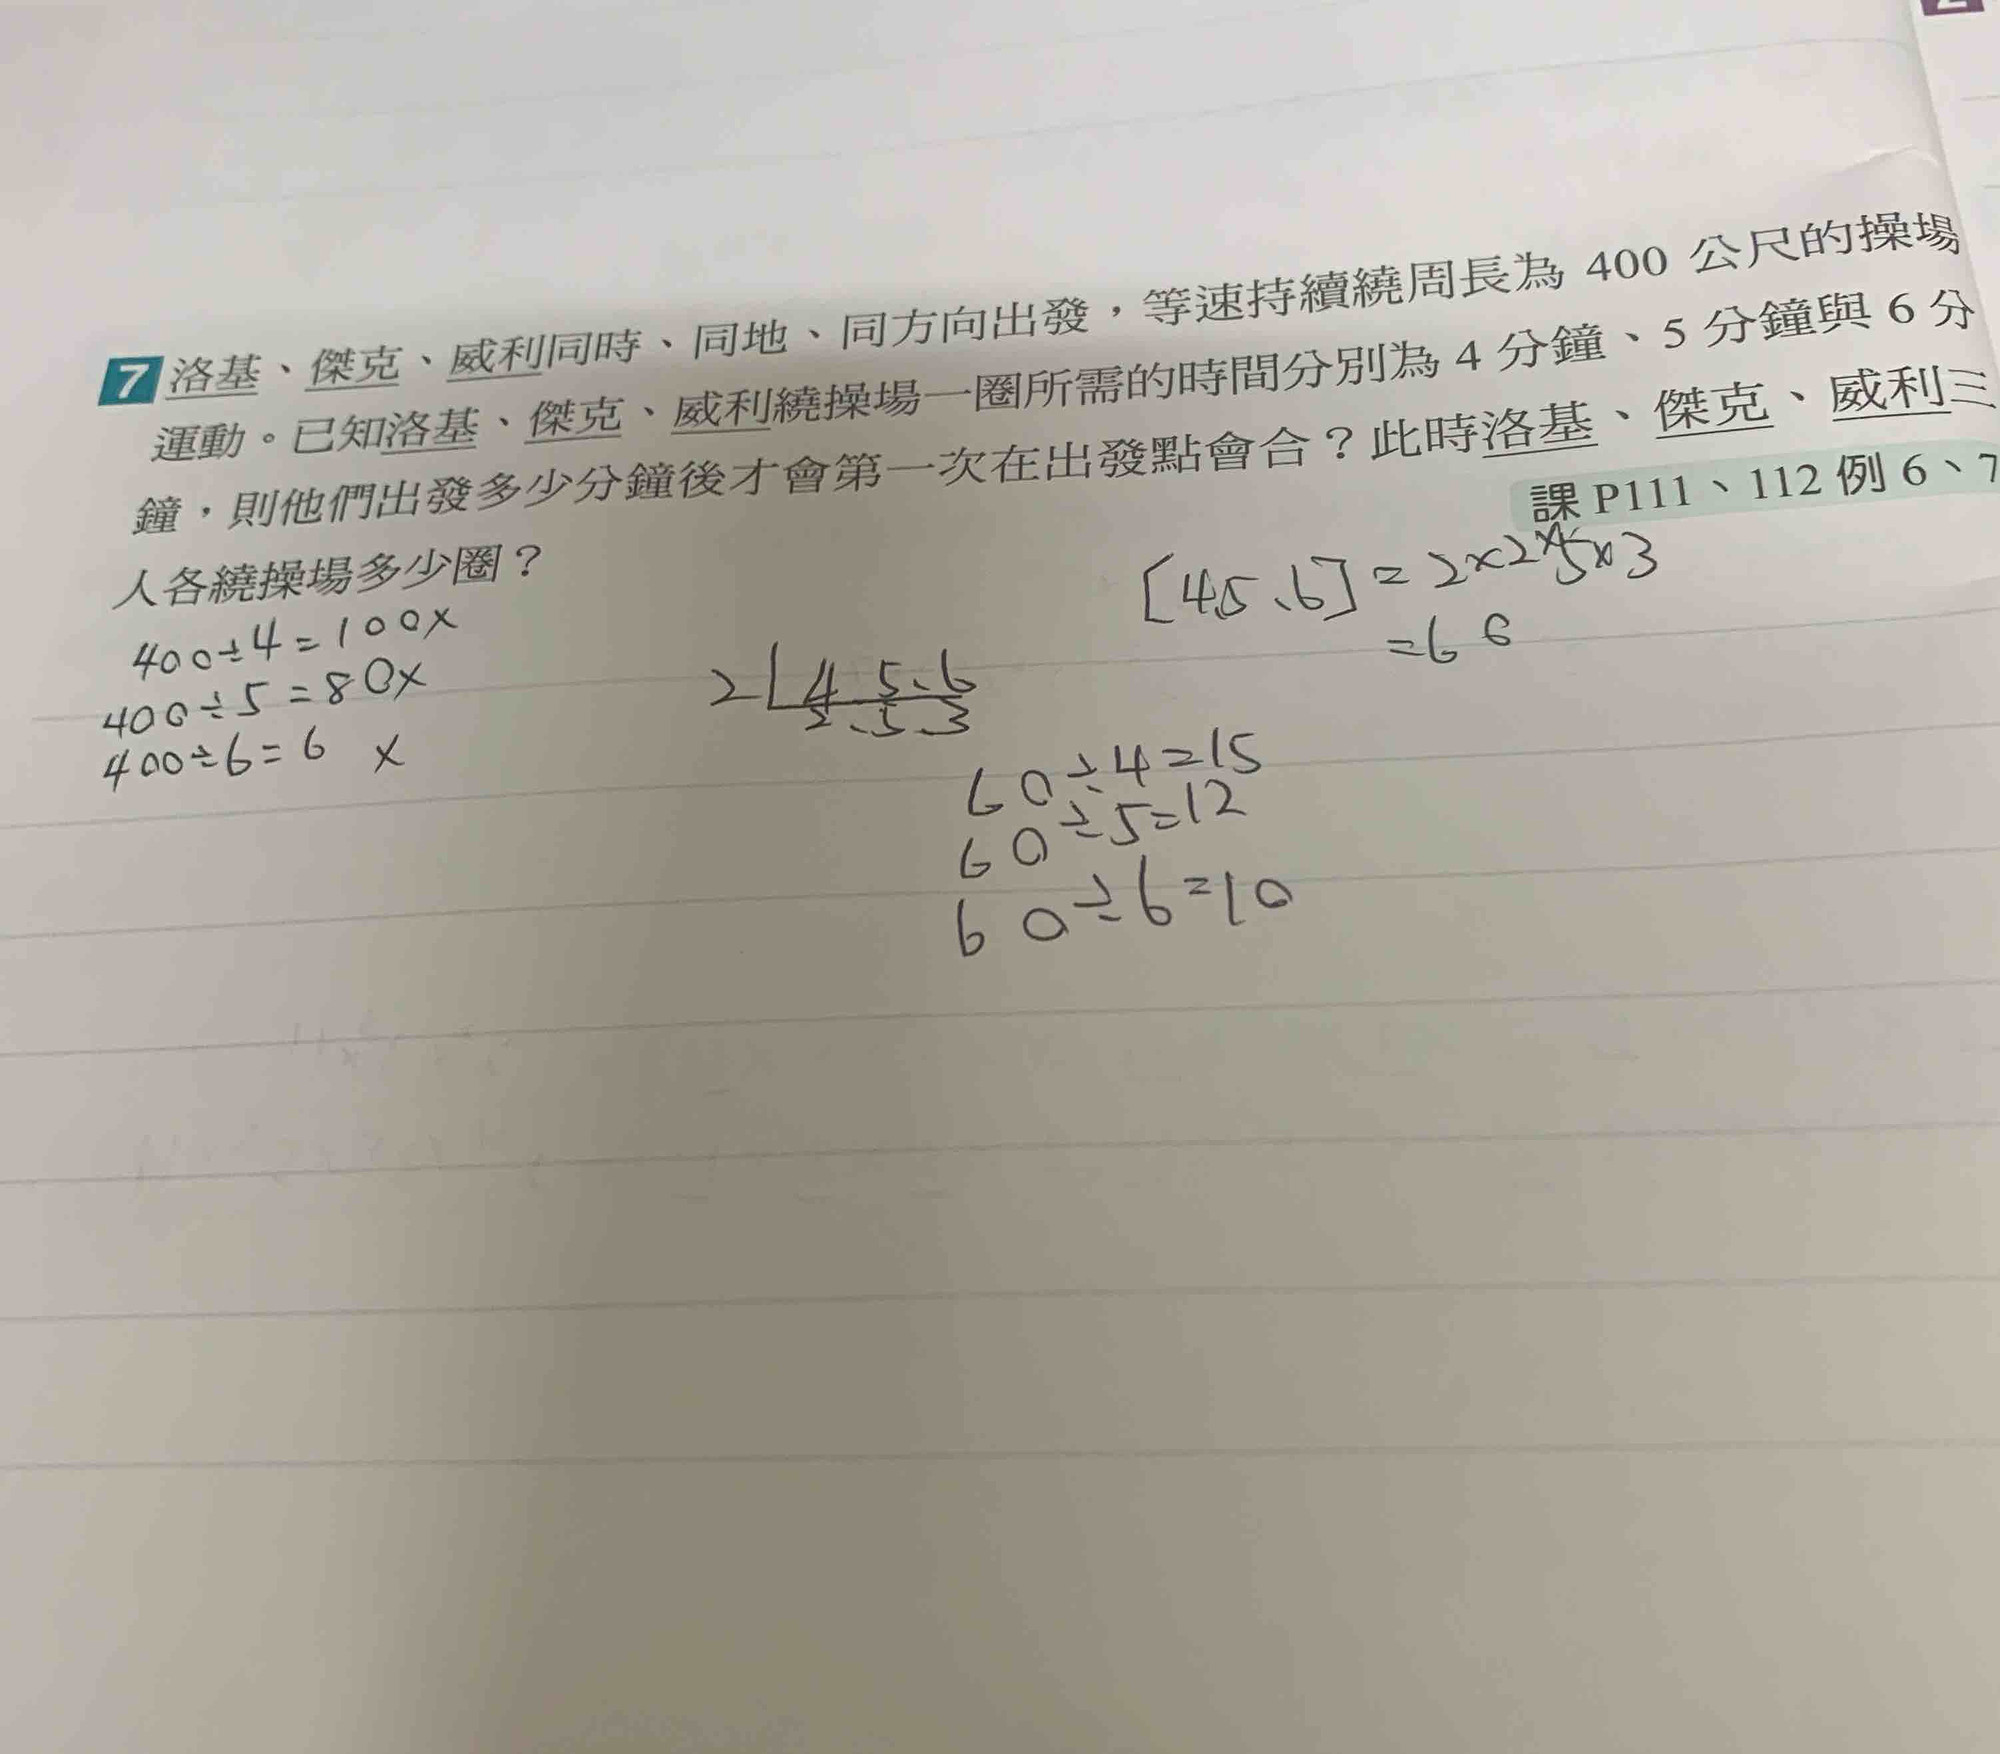 7 洛基、傑克、威利同時、同地、同方向出發，等速持續繞周長為 400 公尺的操場
運動。已知洛基、傑克、威利繞操場一圈所需的時間分別為 4 分鐘、5 分鐘與 6 分
鐘，則他們出發多少分鐘後才會第一次在出發點會合？此時洛基、傑克、威利三
人各繞操場多少圈？
課 P111、112 例 6、7
400÷4=100x
400÷5=80x
400÷6=6 x
2 4 5、6
2、5、3
[4、5、6]=2×2×5×3
=60
60÷4=15
60÷5=12
60÷6=10